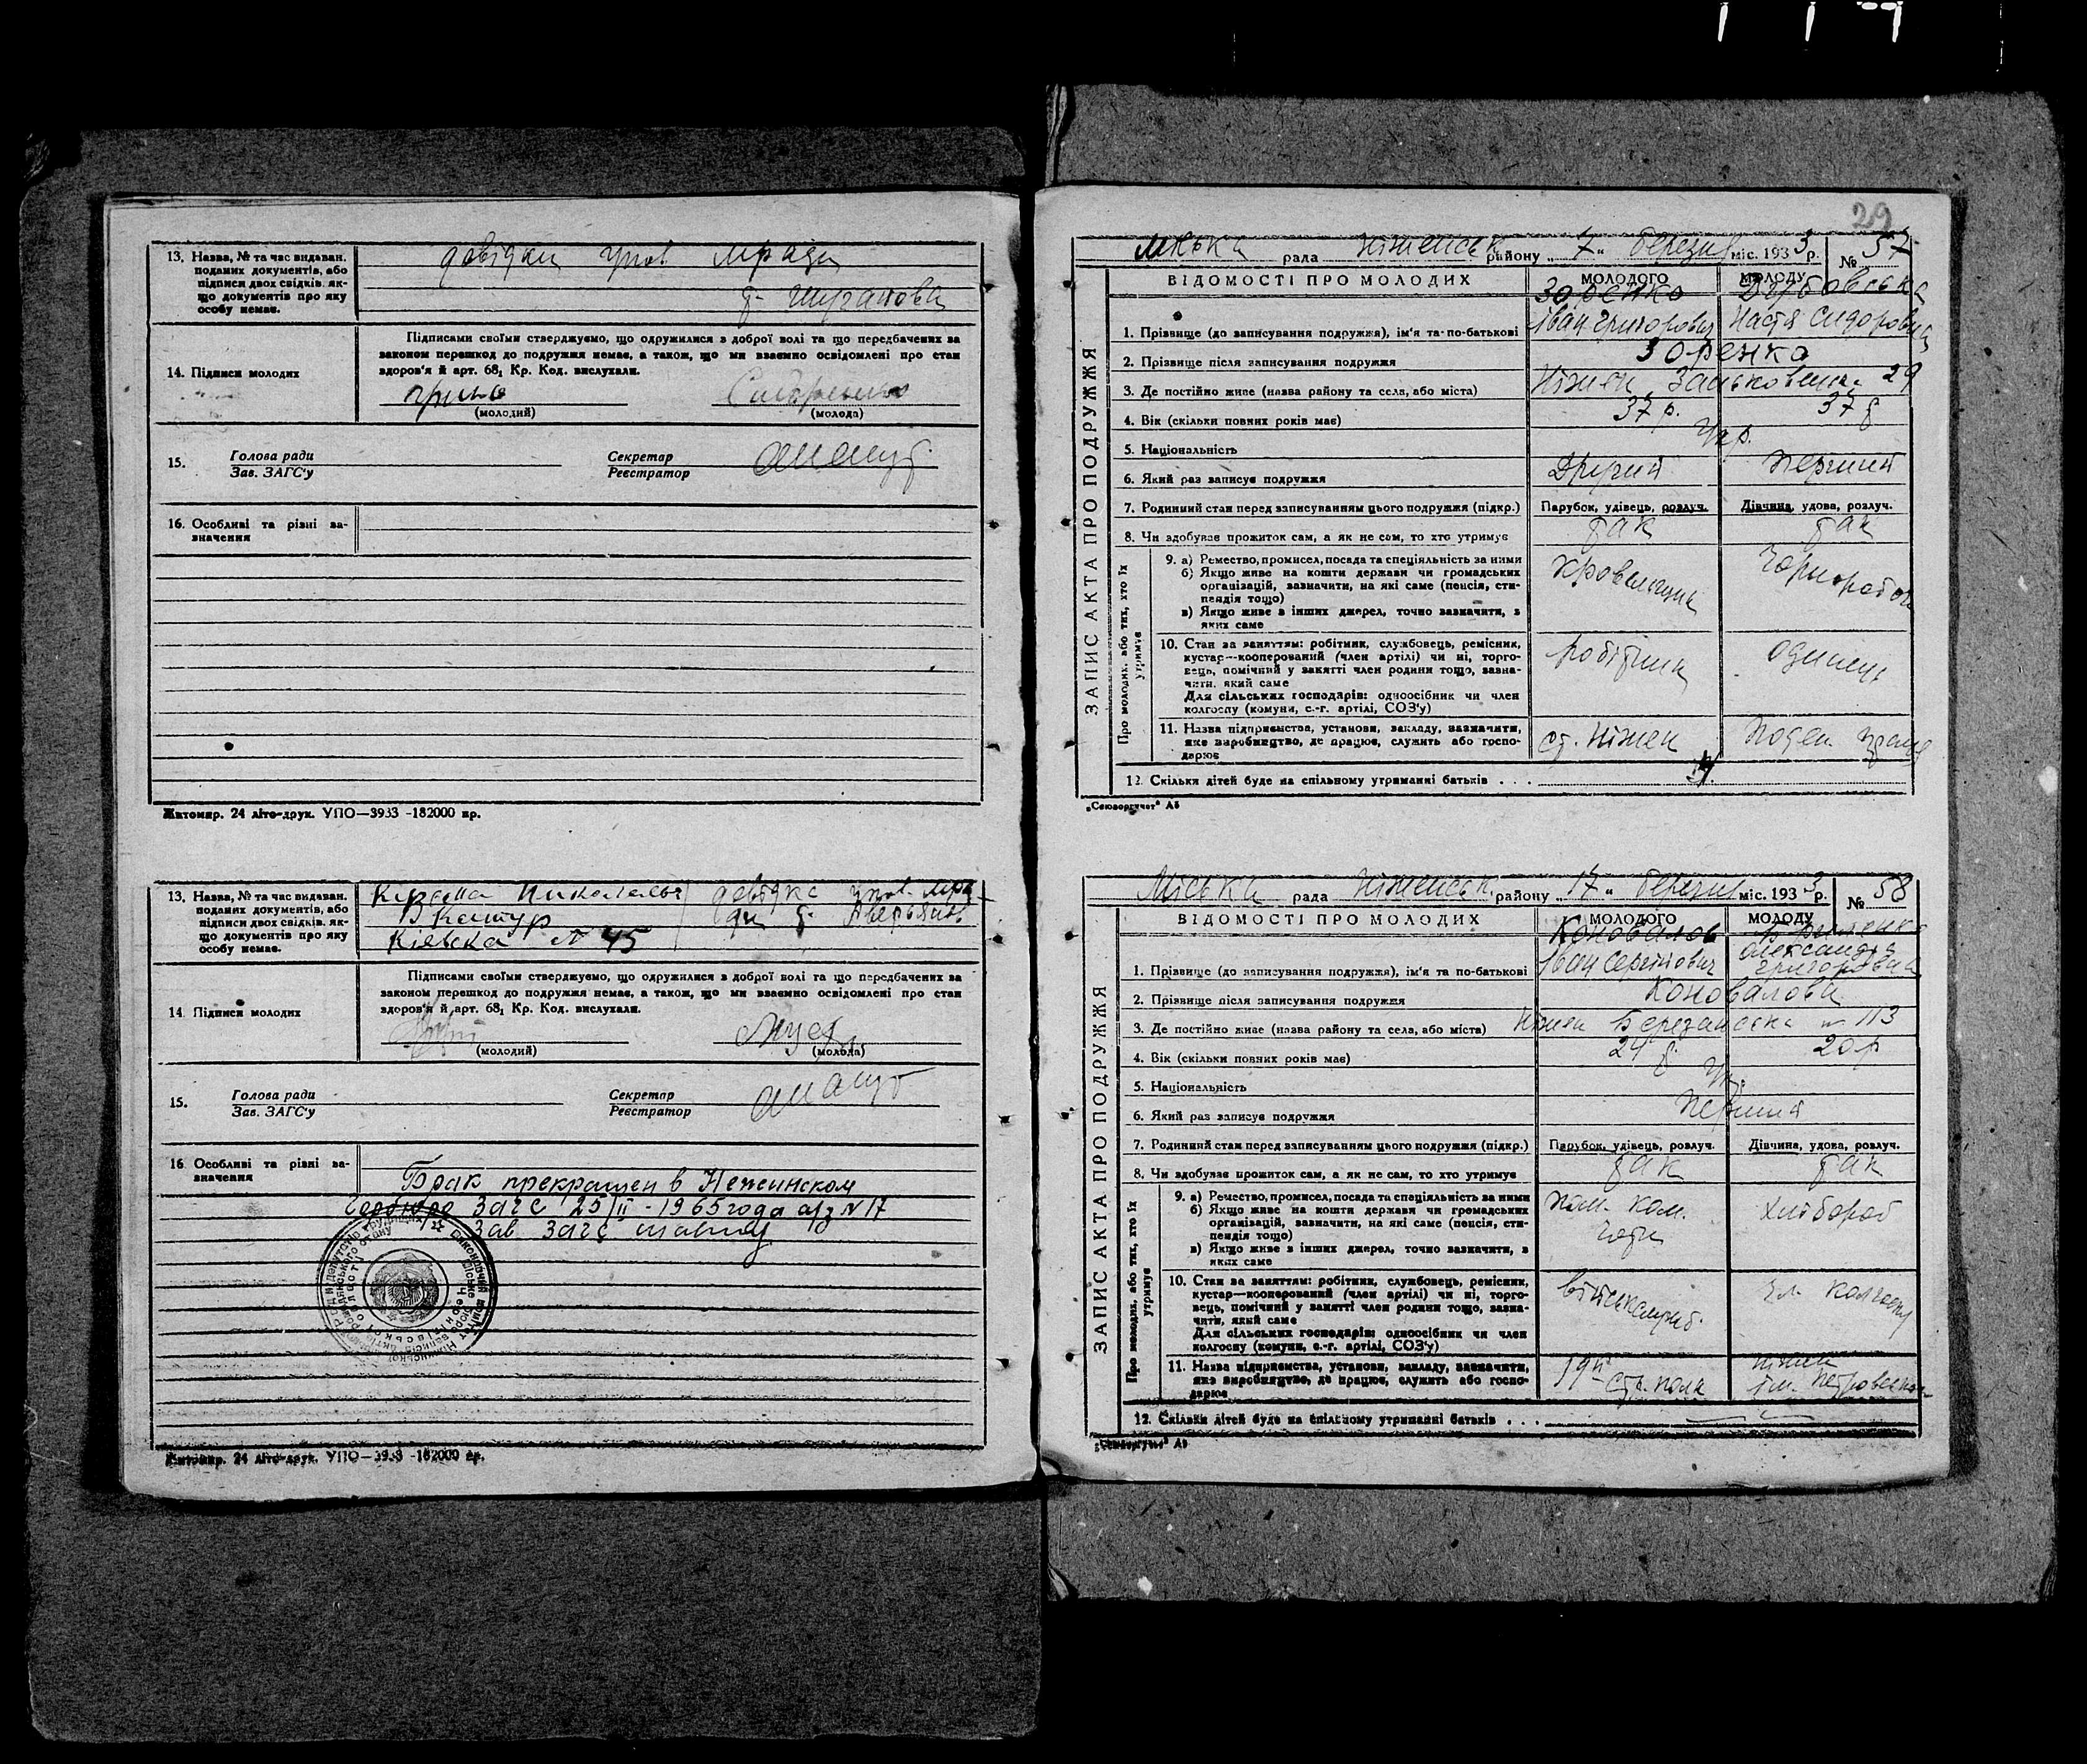 13. Назва, № та час видаван.
поданих документів, або
підписи двох свідків, як-
що документів про яку
особу немає.
довідки упов. мради
Підписами своїми стверджуємо, що одружилися з доброї волі та що передбачених за
законом перешкод до подружжя немає, а також, що ми взаємно освідомлені про стан
здоров'я й арт. 68₁ Кр. Код. вислухали.
14. Підписи молодих
(молодий) (молода)
15. Голова ради Секретар
Зав. ЗАГС'у Реєстратор
16. Особливі та різні за-
значення
Житомир. 24 літо-друк. УПО—3933 -182000 пр.
13. Назва, № та час видаван.
поданих документів, або
підписи двох свідків, як-
що документів про яку
особу немає.
довідка упов.
Київська № 45
Підписами своїми стверджуємо, що одружилися з доброї волі та що передбачених за
законом перешкод до подружжя немає, а також, що ми взаємно освідомлені про стан
здоров'я й арт. 68₁ Кр. Код. вислухали.
14. Підписи молодих
(молодий) (молода)
15. Голова ради Секретар
Зав. ЗАГС'у Реєстратор
16. Особливі та різні за-
значення
Брак прекращен в Нежинском
Горбюро Загс 25/II - 1965 года а/з N 17
Зав Загс
Житомир. 24 літо-друк. УПО—3933 -182000 пр.
29
Міська рада Ніженськ району „7“ березня міс. 1933 р. № 57
ЗАПИС АКТА ПРО ПОДРУЖЖЯ
ВІДОМОСТІ ПРО МОЛОДИХ МОЛОДОГО МОЛОДУ
Зоренко Дубовська
1. Прізвище (до записування подружжя), ім'я та по-батькові Іван Григорович Настя Сидоровна
2. Прізвище після записування подружжя Зоренко
3. Де постійно живе (назва району та села, або міста) Ніжен Заньковецька 29
4. Вік (скільки повних років має) 37 р. 37 р
5. Національність Укр.
6. Який раз записує подружжя Другий Перший
7. Родинний стан перед записуванням цього подружжя (підкр.) Парубок, удівець, розлуч. Дівчина, удова, розлуч.
8. Чи здобуває прожиток сам, а як не сам, то хто утримує так так
Про молодих, або тих, хто їх утримує
9. а) Ремество, промисел, посада та спеціяльність за ними
б) Якщо живе на кошти держави чи громадських
організацій, зазначити, на які саме (пенсія, сти-
пендія тощо)
в) Якщо живе з інших джерел, точно зазначити, з
яких саме
Кровельщик Чорноробоч
10. Стан за заняттям: робітник, службовець, ремісник,
кустар—кооперований (член артілі) чи ні, торго-
вець, помічний у занятті член родини тощо, зазна-
чити, який саме
Для сільських господарів: одноосібник чи член
колгоспу (комуни, с.-г. артілі, СОЗ'у)
робітник
11. Назва підприємства, установи, закладу, зазначити,
яке виробництво, де працює, служить або госпо-
дарює
ст. Ніжен
12. Скільки дітей буде на спільному утриманні батьків . . .
„Союзоргучет“ А5
Міська рада Ніженськ району „17“ березня міс. 1933 р. № 58
ЗАПИС АКТА ПРО ПОДРУЖЖЯ
ВІДОМОСТІ ПРО МОЛОДИХ МОЛОДОГО МОЛОДУ
Коновалов
1. Прізвище (до записування подружжя), ім'я та по-батькові Іван Сергійович Олександра Григоровна
2. Прізвище після записування подружжя Коновалови
3. Де постійно живе (назва району та села, або міста) Ніжен Березанська № 113
4. Вік (скільки повних років має) 24 р. 20 р
5. Національність Укр.
6. Який раз записує подружжя Перший
7. Родинний стан перед записуванням цього подружжя (підкр.) Парубок, удівець, розлуч. Дівчина, удова, розлуч.
8. Чи здобуває прожиток сам, а як не сам, то хто утримує так так
Про молодих, або тих, хто їх утримує
9. а) Ремество, промисел, посада та спеціяльність за ними
б) Якщо живе на кошти держави чи громадських
організацій, зазначити, на які саме (пенсія, сти-
пендія тощо)
в) Якщо живе з інших джерел, точно зазначити, з
яких саме
пом. ком. Хлібороб
10. Стан за заняттям: робітник, службовець, ремісник,
кустар—кооперований (член артілі) чи ні, торго-
вець, помічний у занятті член родини тощо, зазна-
чити, який саме
Для сільських господарів: одноосібник чи член
колгоспу (комуни, с.-г. артілі, СОЗ'у)
військслужб. чл. колгоспу
11. Назва підприємства, установи, закладу, зазначити,
яке виробництво, де працює, служить або госпо-
дарює
19й стр. полк Ніжен ім. Петровського
12. Скільки дітей буде на спільному утриманні батьків . . .
„Союзоргучет“ А5